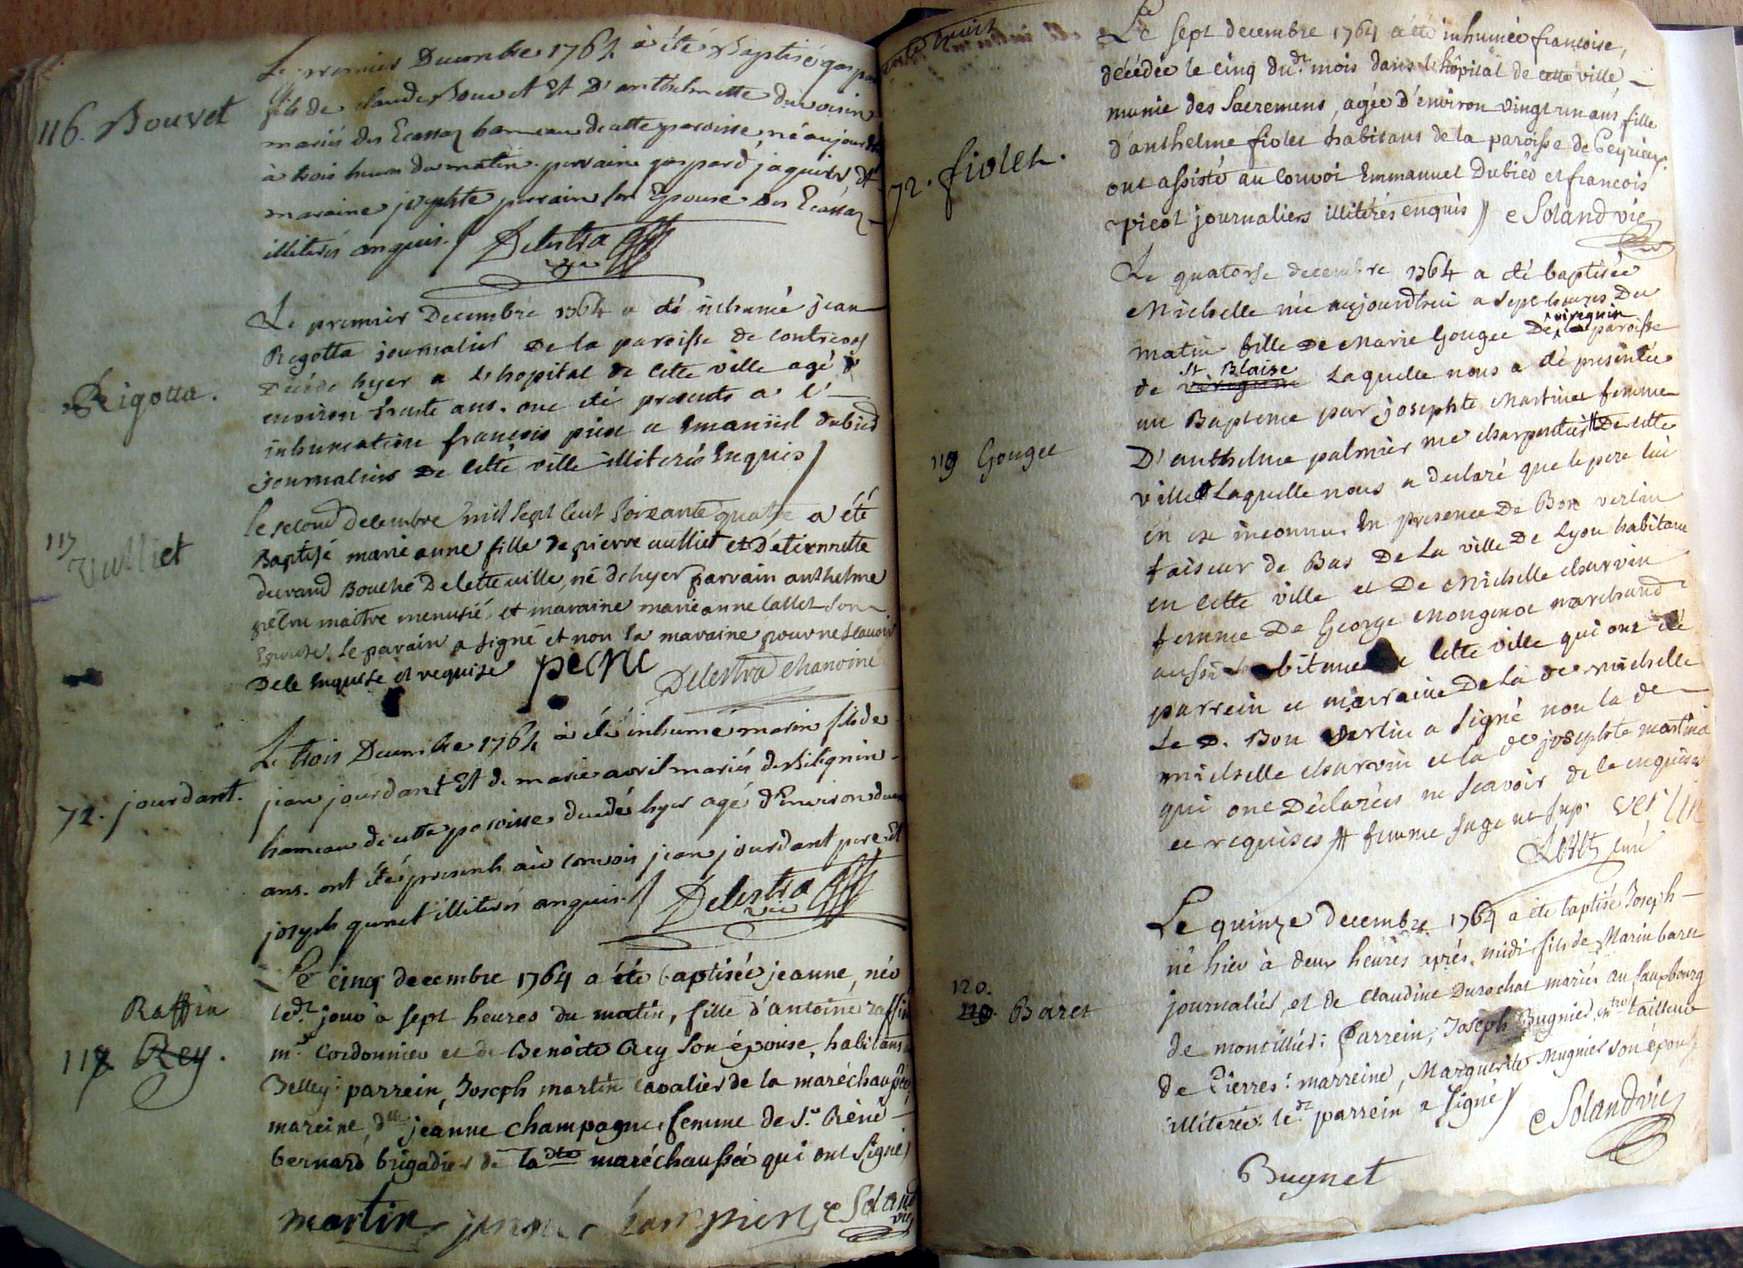 116. Bouvet
Le premier Decembre 1764 à été Baptisé gaspard
fils de claude Bouvet Et D'anthelmette Duvoisin
mariés des Ecassaz hameau de cette paroisse né aujourd'hui
à trois heures du matin. parraine gaspard jaquier Et
maraine josephte parrain son Epouse des Ecassaz
illiterés enquis. / Delestra vic
Rigotta.
Le premier Decembre 1764 a été inhumé jean
Rigotta journalier De la paroisse de contrevos
Décédé hyer a L'hopital de Cette ville agé d
environ trente ans. ont été presents a l'
inhumation françois picot et Emanuel dubied
journaliers De Cette ville illiterés Enquis /
117
Vulliet
le second decembre mil sept cent soixante quatre a été
Baptisé marie anne fille de pierre vulliet et D'etiennette
durand Bouché De Cette ville, né dehyer parvain anthelme
maitre menusié, et maraine marie anne Callet son
Epouse. Le parain a signé et non la maraine pour ne scavoir
Dele Enquise et requise pecne
Delestra chanoine
72. jourdant.
Le trois Decembre 1764 à été inhumé marin fils de
jean jourdant Et de marie avril mariés de Bilignin
hameau de cette paroisse decedé hyer agé d'Environ deux
ans. ont étés presents au convois jean jourdant pere Et
joseph genet illiterés enquis. / Delestra vic
Raffin
118 Rey.
Le cinq decembre 1764 a été baptisée jeanne, née
ledt. jour à sept heures du matin, fille d'antoine raffin
me. Cordonnier et de Benoite Rey son épouse, habitans a
Belley: parrein, Joseph martin cavalier de la maréchaussée,
mareine, dlle jeanne champagne femme de Sr. Réné
bernard brigadier de ladte maréchaussée qui ont signé /
martin jeanne champien e Soland vic
72. fiolet.
Le sept decembre 1764 a été inhumée francoise,
décédée le cinq dudt. mois dans l'hôpital de cette ville
munie des Sacremens, agée d'environ vingt un ans fille
d'anthelme fiolet habitans de la paroisse de Peyrieux.
ont assisté au convoi Emmanuel Dubied et francois
picot journaliers illiterés enquis // e Soland vic
119 Gouget
Le quatorse decembre 1764 a été baptisée
Michelle née aujourdhui a sept heures Du
matin fille De Marie Gouget De virignin la paroisse
de St. Blaise virignin Laquelle nous a été presentée
au Bapteme par josephte Martinet femme
D'anthelme palmier me charpentier De cette
ville Laquelle nous a declaré que le pere lui
en est inconnu. En presence De Bon verlin
faiseur de Bas De La ville De Lyon habitant
en Cette ville et De Michelle charvin
femme De George Mongenot marchand
aussi habitant de Cette ville qui ont été
parrein et marraine De La de michelle
Le D. Bon verlin a signé non la de
michelle charvin et la de josephte martinet
qui ont Déclarées ne scavoir de ce enquises
et requises // femme juge ut sup. verlin
curé
120.
119. Baret
Le quinze decembre. 1764 a été baptisé Joseph
né hier à deux heures après midi fils de Marin baret
journalier, et de Claudine Durochat mariés au fauxbourg
de montillier: Parrein, Joseph Bugnier, me tailleur
de Pierres: marreine, Marguerite Mugnier son épouse
illiterée ledt. parrein a signé / e Soland vic
Bugnet